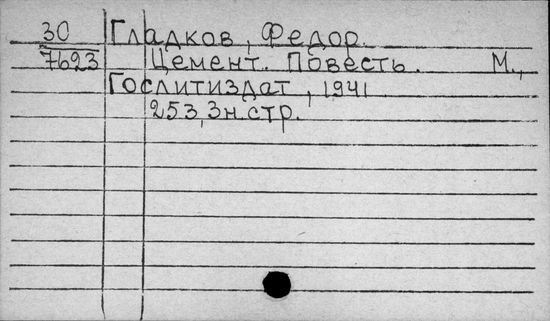 30 Гладков, Федор.
7623 Цемент. Повесть. М.,
Гослитиздат, 1941
253, 3 н. стр.